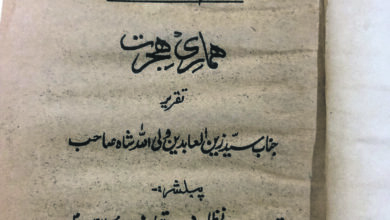 ہماری ہجرت
تقریر
جناب سیّد زین العابدین ولی اللہ شاہ صاحب
پبلشر:-